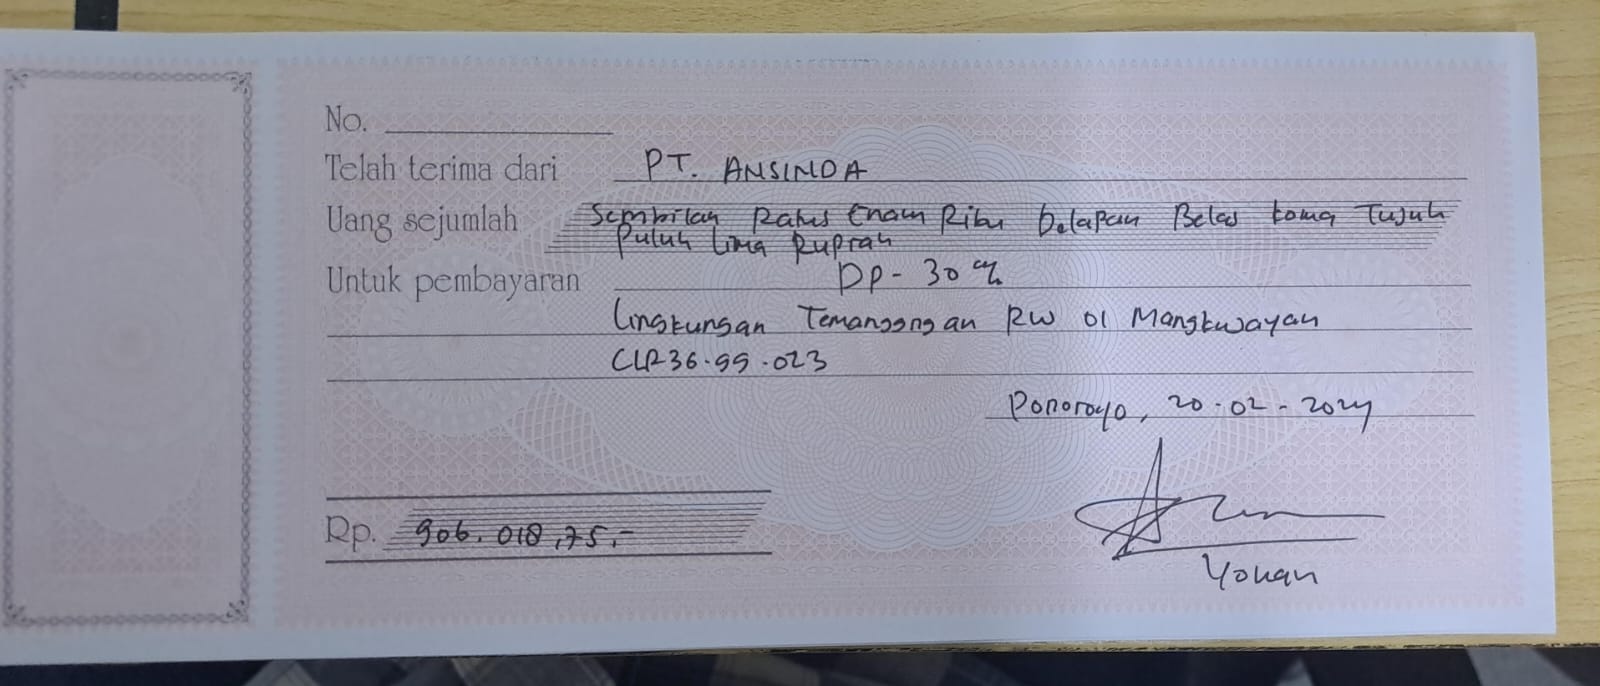 No.
Telah terima dari PT. ANSINDA
Uang sejumlah Sembilan Ratus Enam Ribu Delapan Belas koma Tujuh
Puluh Lima Rupiah
Untuk pembayaran DP- 30 %
Lingkungan Temanggongan RW 01 Mangkwayan
CLP36.99.023
Ponorogo, 20-02-2024
Rp. 906.018,75,-
Yohan